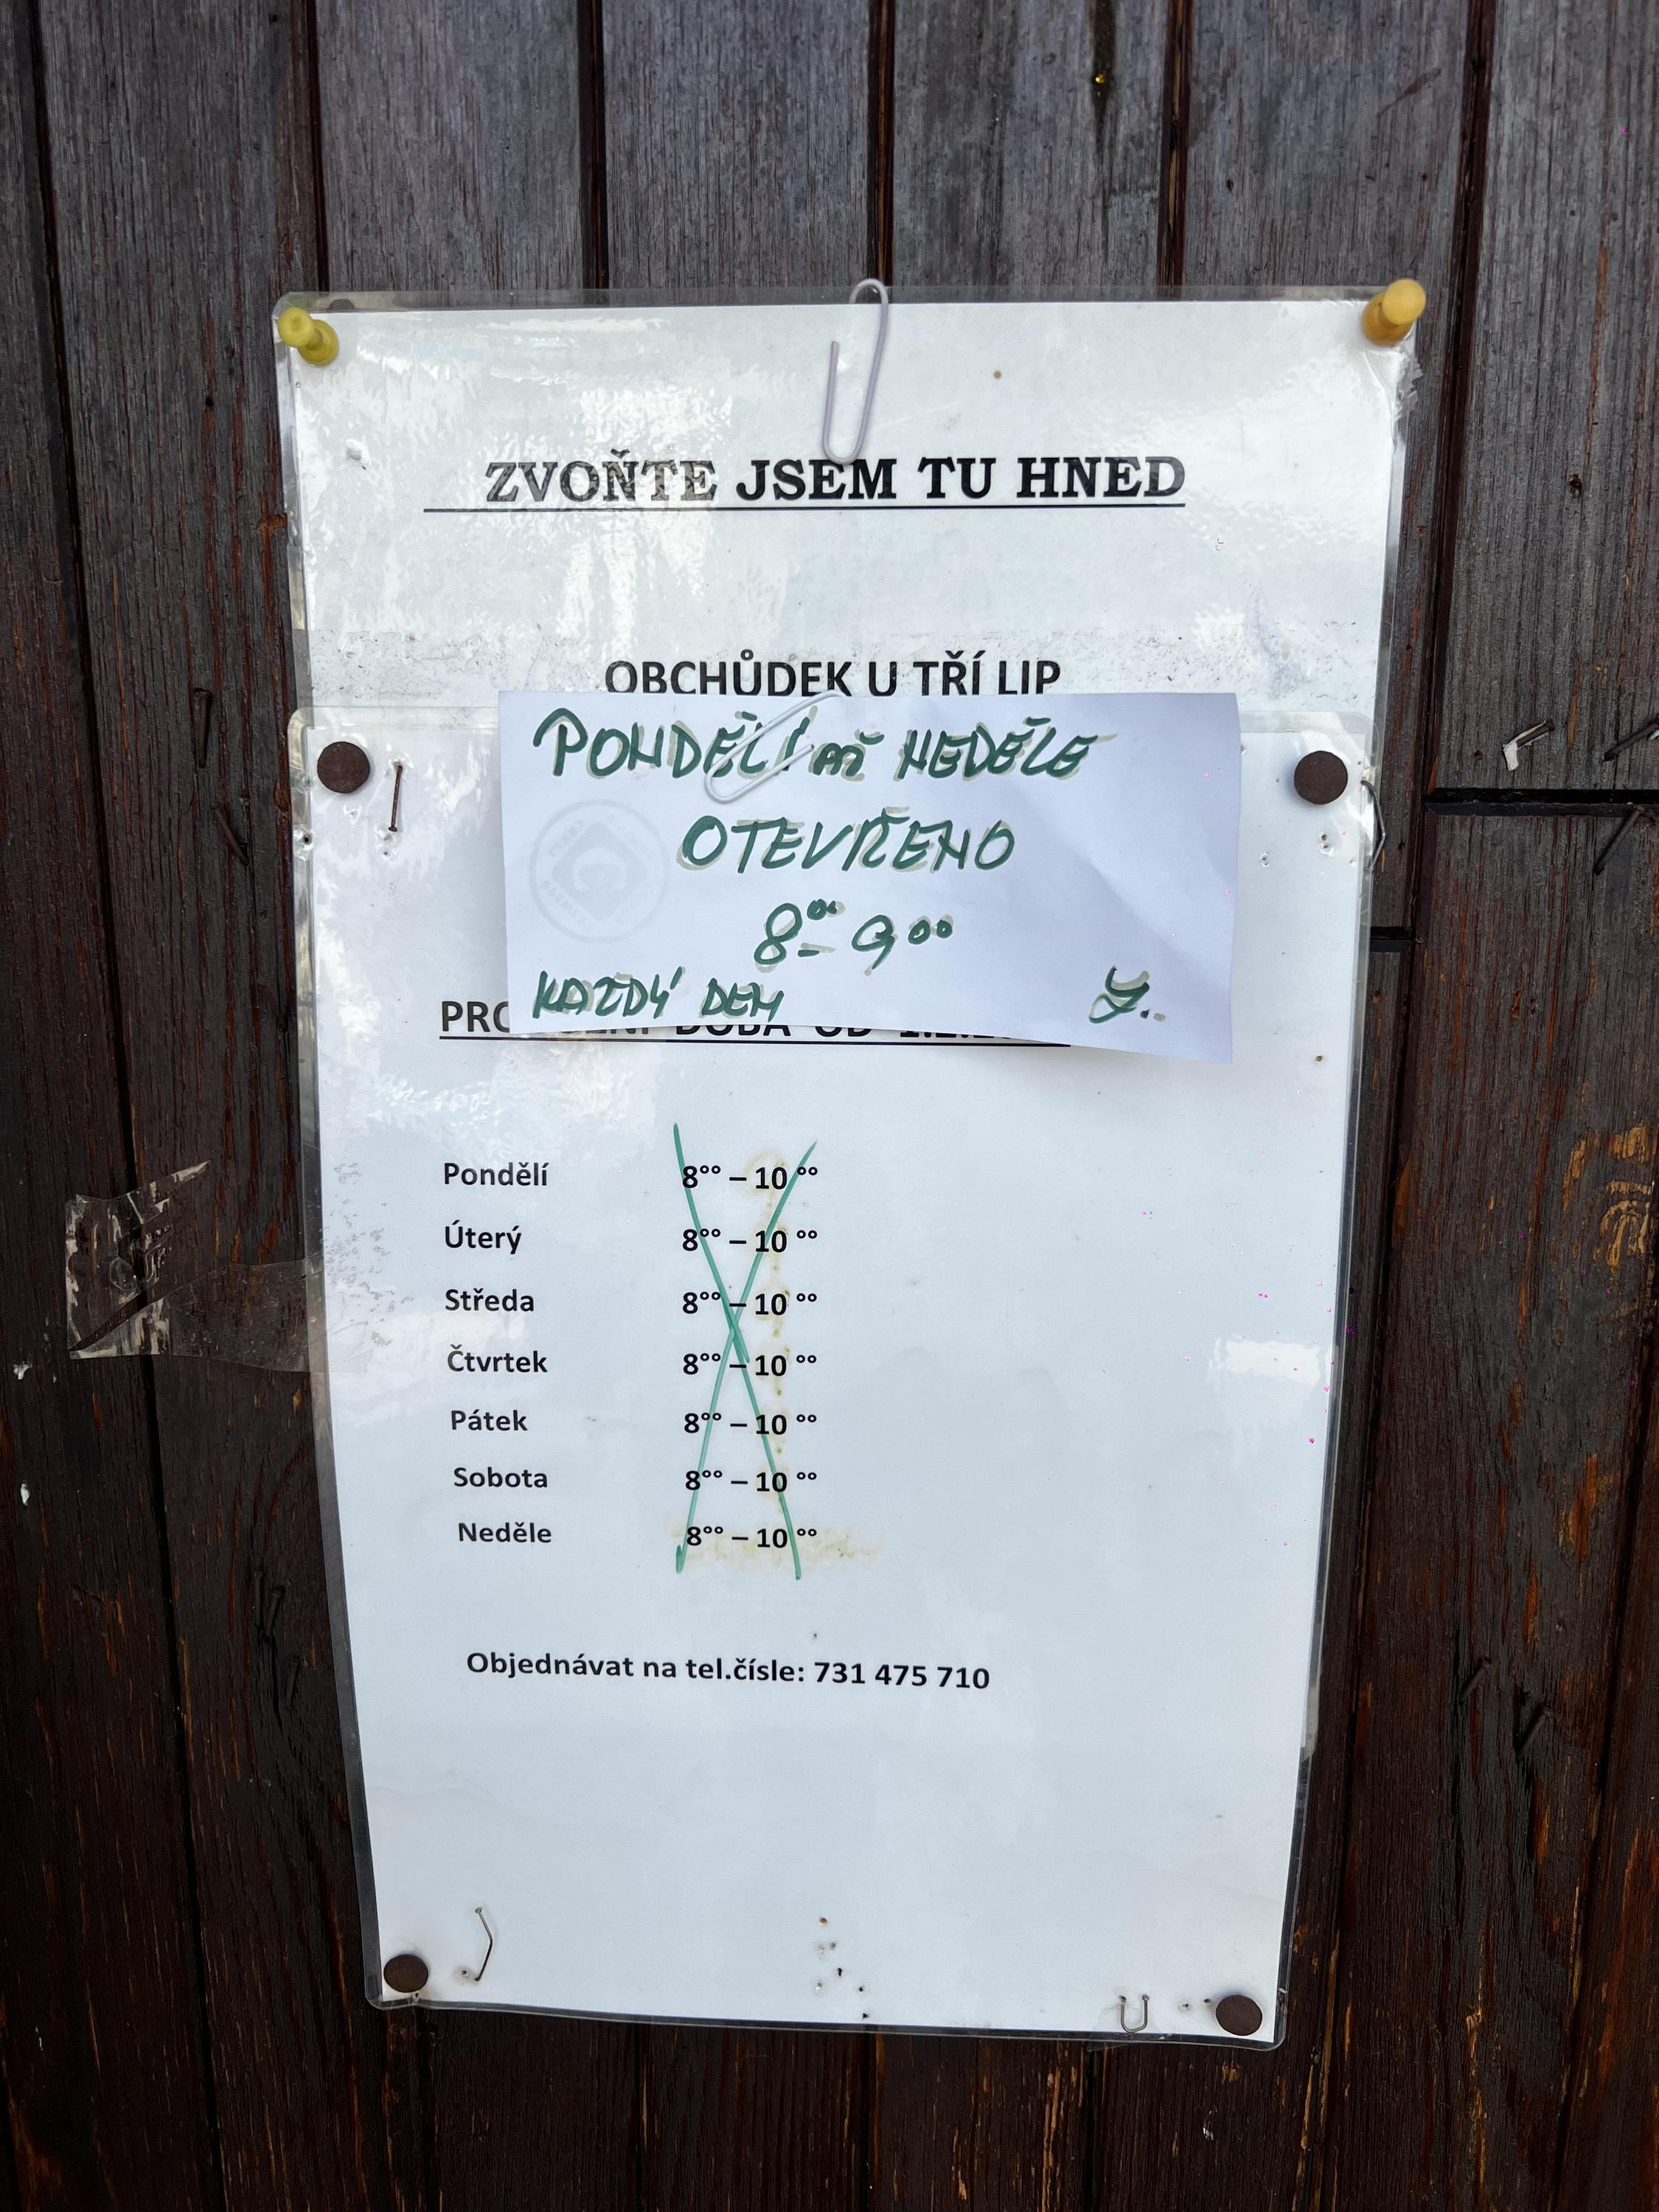 ZVOŇTE JSEM TU HNED
OBCHŮDEK U TŘÍ LIP
PONDĚLÍ AŽ NEDĚLE
OTEVŘENO
8⁰⁰- 9⁰⁰
KAŽDÝ DEN
DOBA OD
Pondělí 8°° – 10 °°
Úterý 8°° – 10 °°
Středa 8°° – 10 °°
Čtvrtek 8°° – 10 °°
Pátek 8°° – 10 °°
Sobota 8°° – 10 °°
Neděle 8°° – 10 °°
Objednávat na tel.čísle: 731 475 710